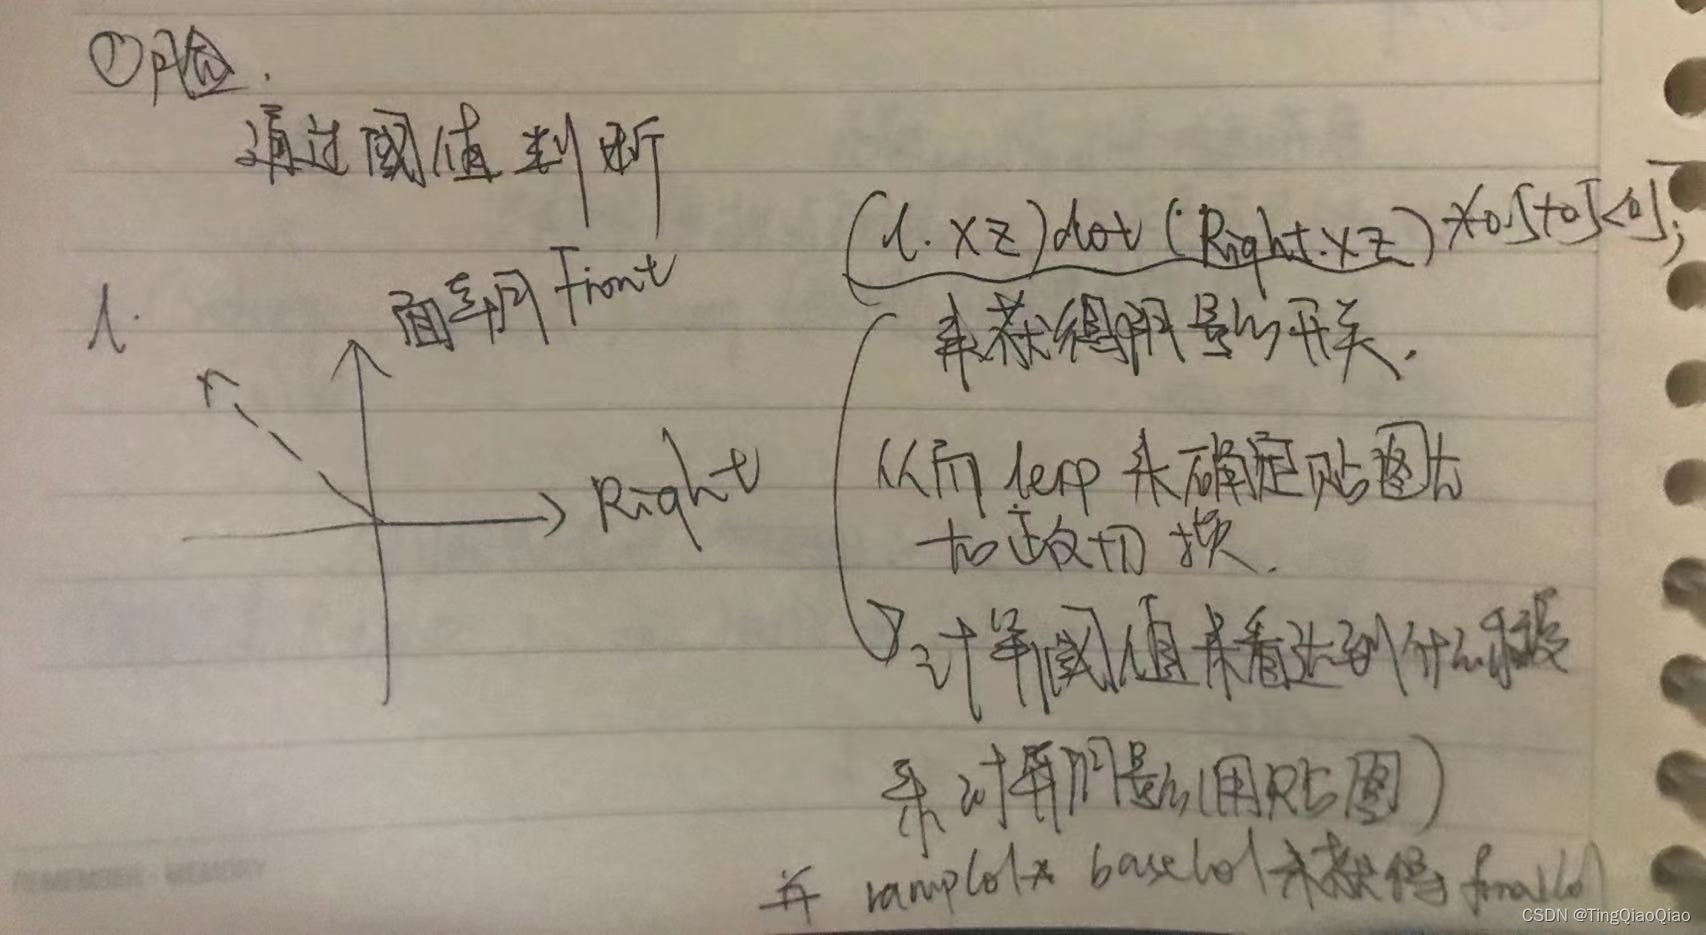 ① 脸.
通过阈值判断
(l.xz)dot(Right.xz)*0.5+0.5<0.5;
l.
面朝向 Front
来获得阴影的开关.
Right
从而 lerp 来确定贴图的
左右切换.
计算阈值来看达到什么程度
来计算阴影(用贴图)
并 rampCol * baseCol 来获得 finalCol
REMEMBER · MEMORY
CSDN @TingQiaoQiao